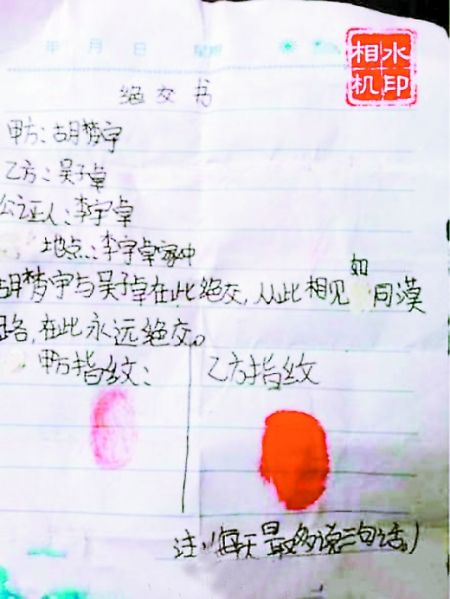 年 月 日 星期
水印
相机
绝交书
甲方:胡梦宇
乙方:吴子卓
公证人:李宇卓
地点:李宇卓家中
胡梦宇与吴子卓在此绝交,从此相见如同漠
路,在此永远绝交。
甲方指纹: 乙方指纹
注:(每天最多说三句话。)